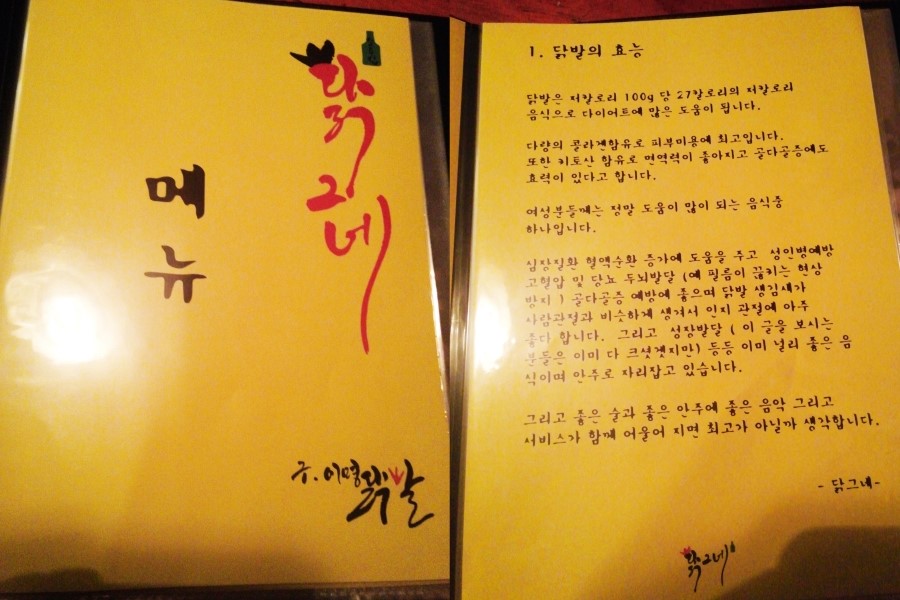 메뉴
닭그네
구.이명 닭발
1. 닭발의 효능
닭발은 저칼로리 100g 당 27칼로리의 저칼로리
음식으로 다이어트에 많은 도움이 됩니다.
다량의 콜라겐함유로 피부미용에 최고입니다.
또한 키토산 함유로 면역력이 좋아지고 골다골증에도
효력이 있다고 합니다.
여성분들께는 정말 도움이 많이 되는 음식중
하나입니다.
심장질환 혈액순환 증가에 도움을 주고 성인병예방
고혈압 및 당뇨 두뇌발달 (예 필름이 끊키는 현상
방지 ) 골다골증 예방에 좋으며 닭발 생김새가
사람관절과 비슷하게 생겨서 인지 관절에 아주
좋다 합니다. 그리고 성장발달 ( 이 글을 보시는
분들은 이미 다 크셧겟지만) 등등 이미 널리 좋은 음
식이며 안주로 자리잡고 있습니다.
그리고 좋은 술과 좋은 안주에 좋은 음악 그리고
서비스가 함께 어울어 지면 최고가 아닐까 생각합니다.
- 닭그네-
닭그네